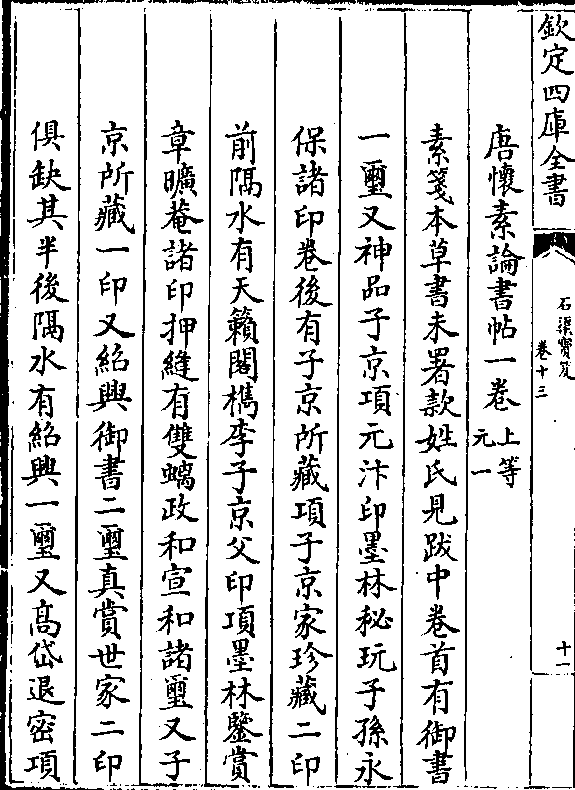 欽定四庫全書
石渠寶笈
卷十三
十一
唐懷素論書帖一卷
上等
元一
素箋本草書未署款姓氏見跋中卷首有御書
一璽又神品子京項元汴印墨林秘玩子孫永
保諸印卷後有子京所藏項子京家珍藏二印
前隔水有天籟閣檇李子京父印項墨林鑒賞
章曠菴諸印押縫有雙螭政和宣和諸璽又子
京所藏一印又紹興御書二璽真賞世家二印
俱缺其半後隔水有紹興一璽又髙岱退密項